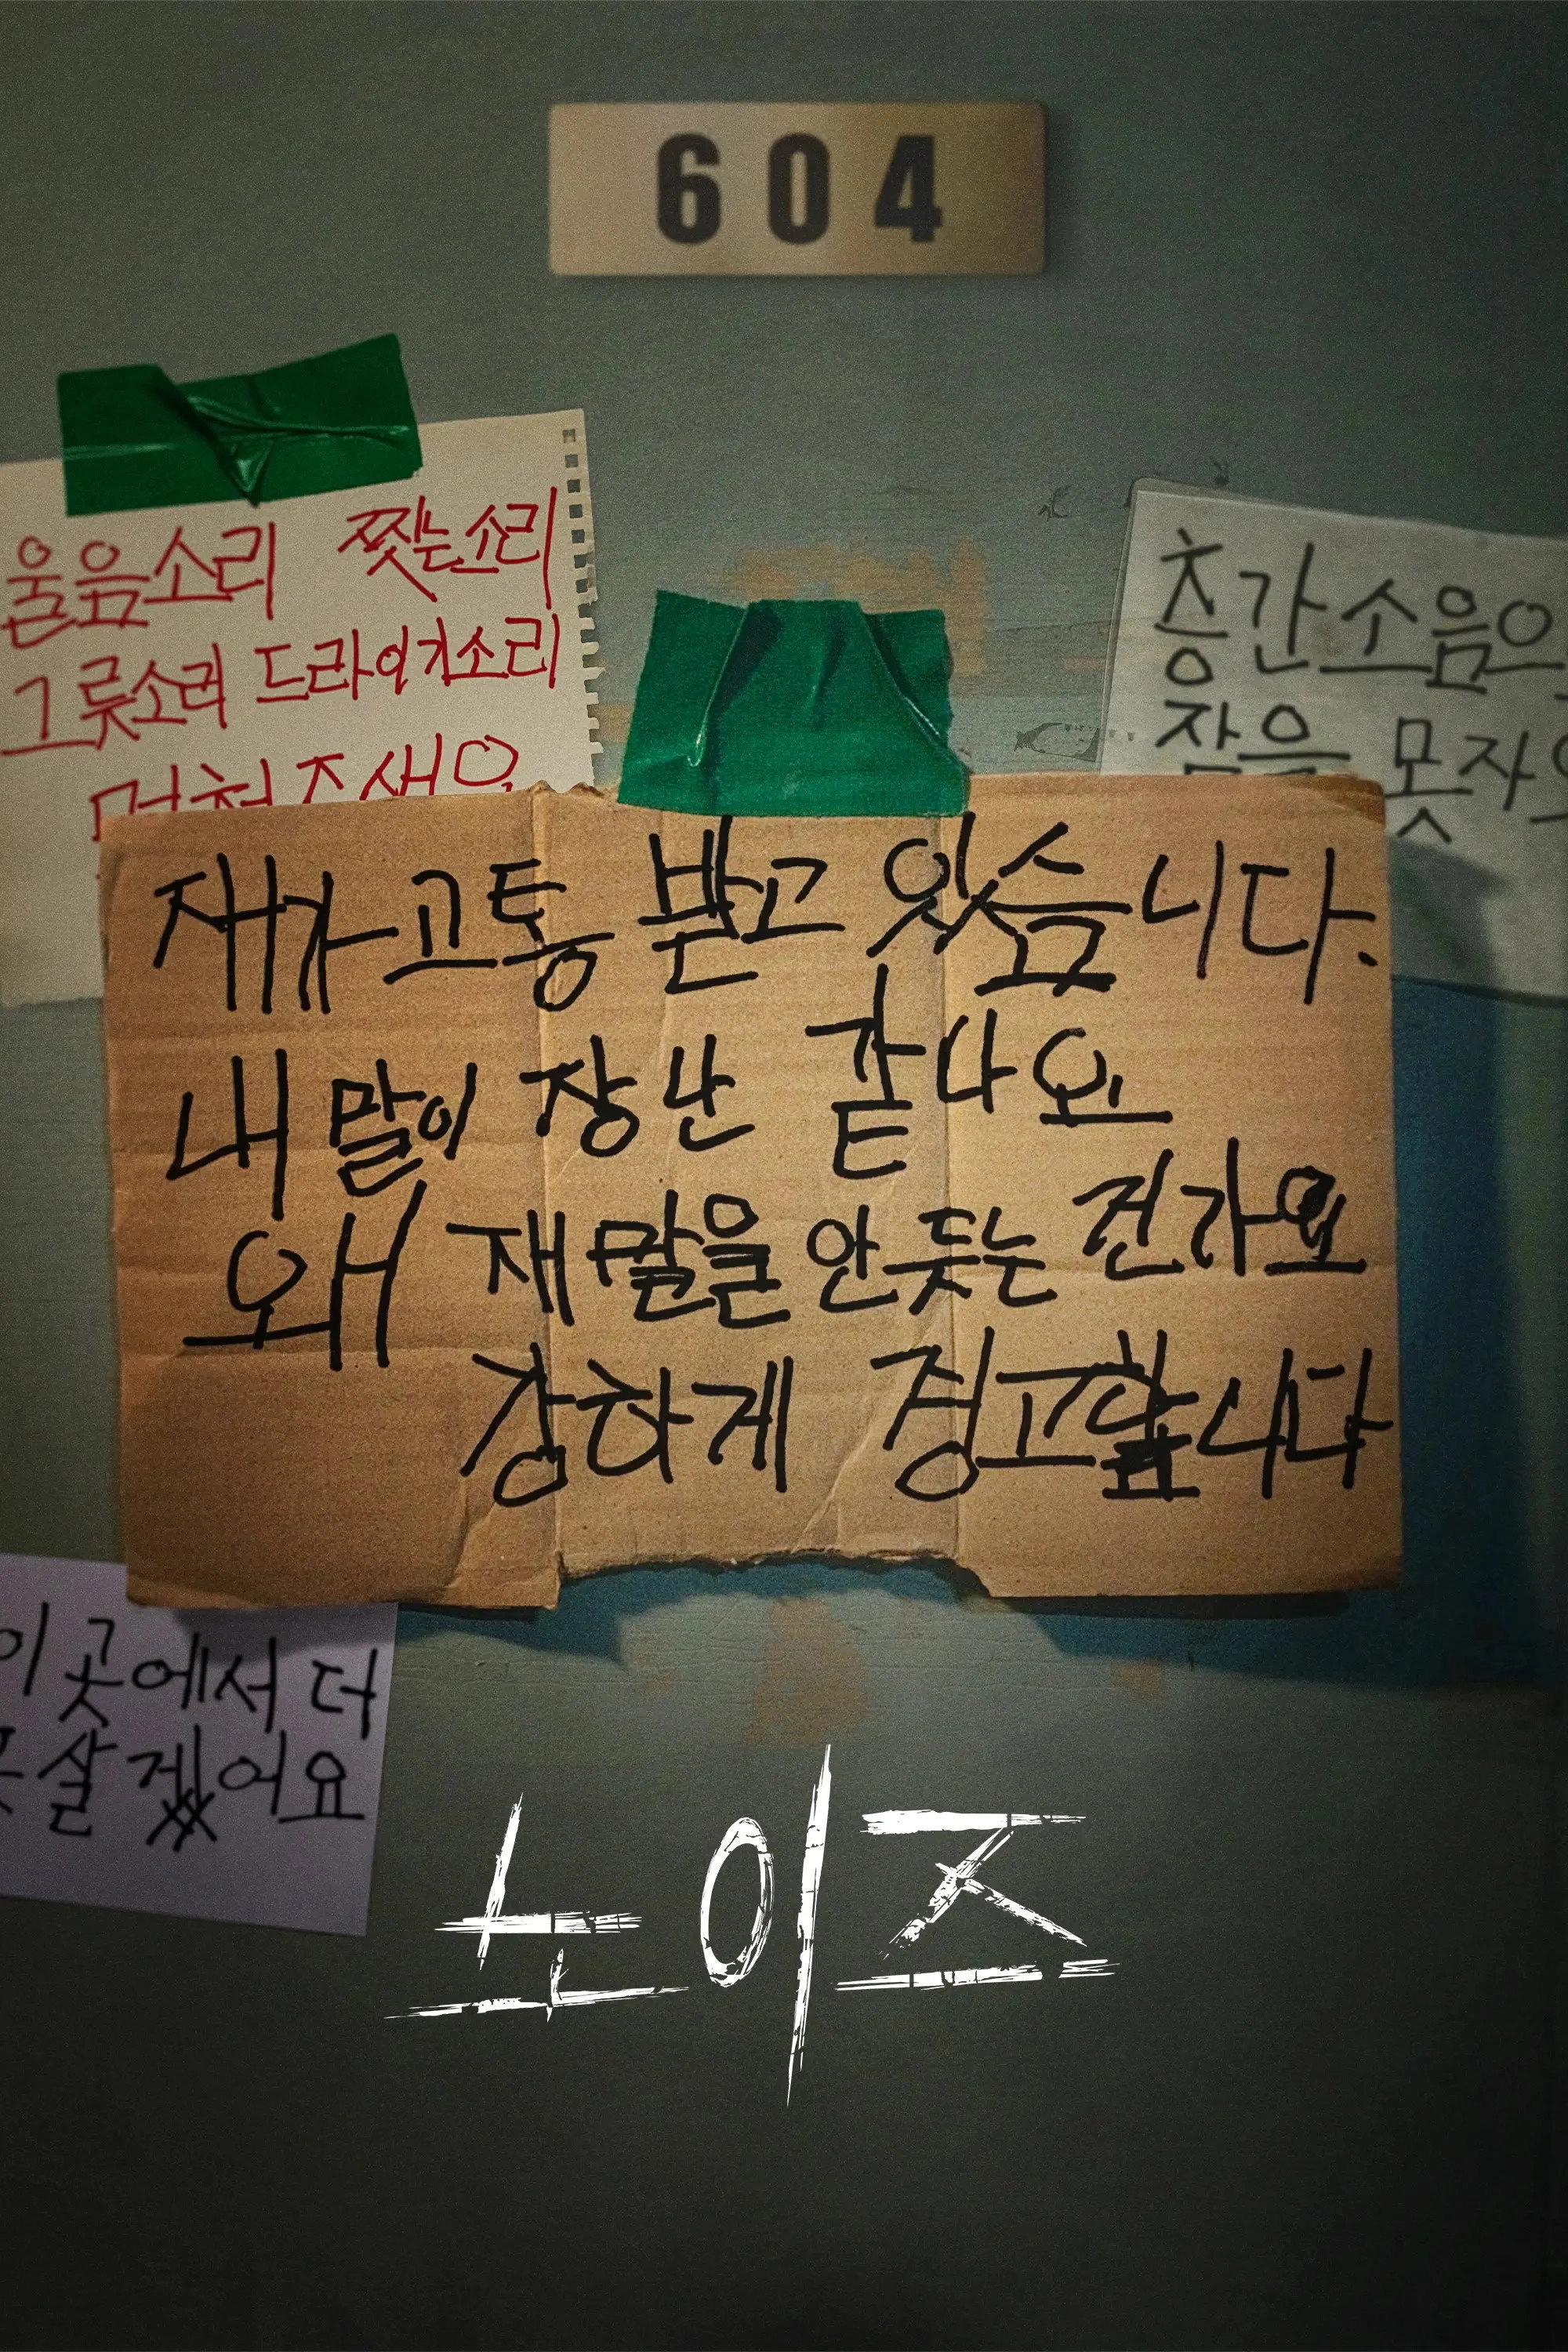 604
울음소리 찢는소리
그릇소리 드라이기소리
멈춰주세요
층간소음으
잠을 못자요
재가 고통 받고 있습니다.
내 말이 장난 같나요
왜 재 말을 안듯는 건가요
강하게 경고합니다
이 곳에서 더
못살겠어요
노이즈